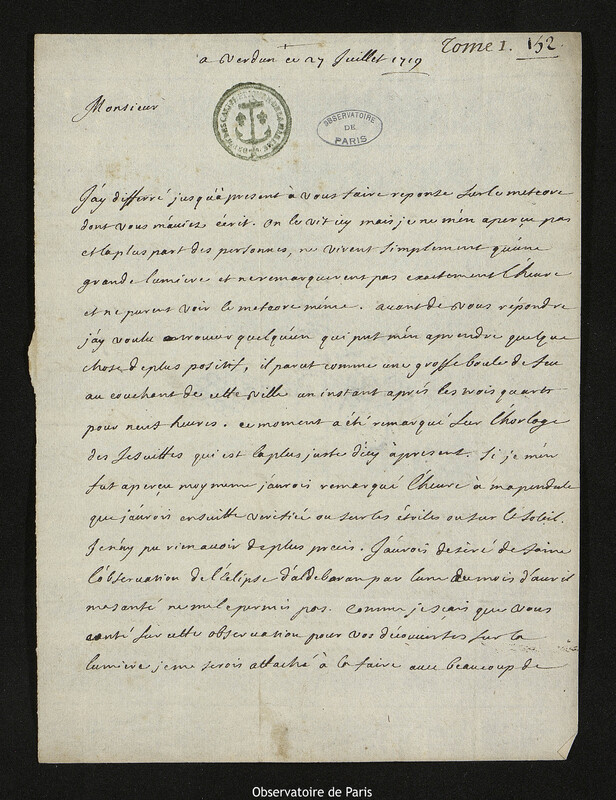 Tome 1. 152.
a Verdun ce 27 Juillet 1719
Monsieur
OBSERVATOIRE
DE
PARIS
J'ay differré jusqu'à present à vous faire reponse sur le meteore
dont vous m'aviez écrit. On le vit icy mais je ne m'en aperçu pas
et la plus part des personnes, ne virent simplement qu'une
grande lumiere et ne remarquerent pas exactement l'heure
et ne purent voir le meteore même. avant de vous répondre
j'ay voulu trouver quelqu'un qui put m'en aprendre quelque
chose de plus positif, il parut comme une grosse boule de feu
au couchant de cette ville un instant aprés les trois quarts
pour neuf heures. ce moment a été remarqué sur l'horloge
des Jesuittes qui est la plus juste d'icy à present. Si je m'en
fut aperçu moy meme j'aurois remarqué l'heure à ma pendule
que j'aurois ensuitte verifiée ou sur les étoiles ou sur le soleil.
Je n'ay pu rien avoir de plus precis. J'aurois desiré de faire
l'observation de l'Eclipse d'aldebaran par lune du mois d'avril
ma santé ne me le permis pas. Comme je sçais que vous
conté sur cette observation pour vos découvertes sur la
lumiere je me serois attaché à la faire avec beaucoup de
Observatoire de Paris